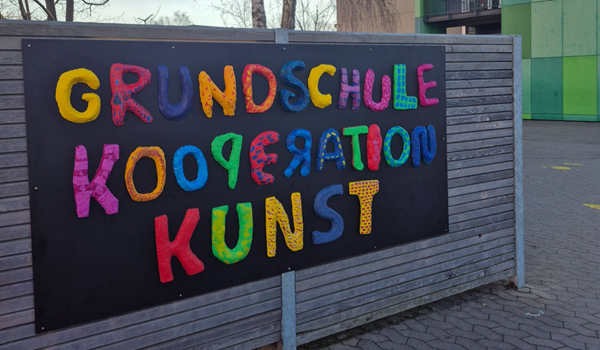 GRUNDSCHULE
KOOPERATION
KUNST